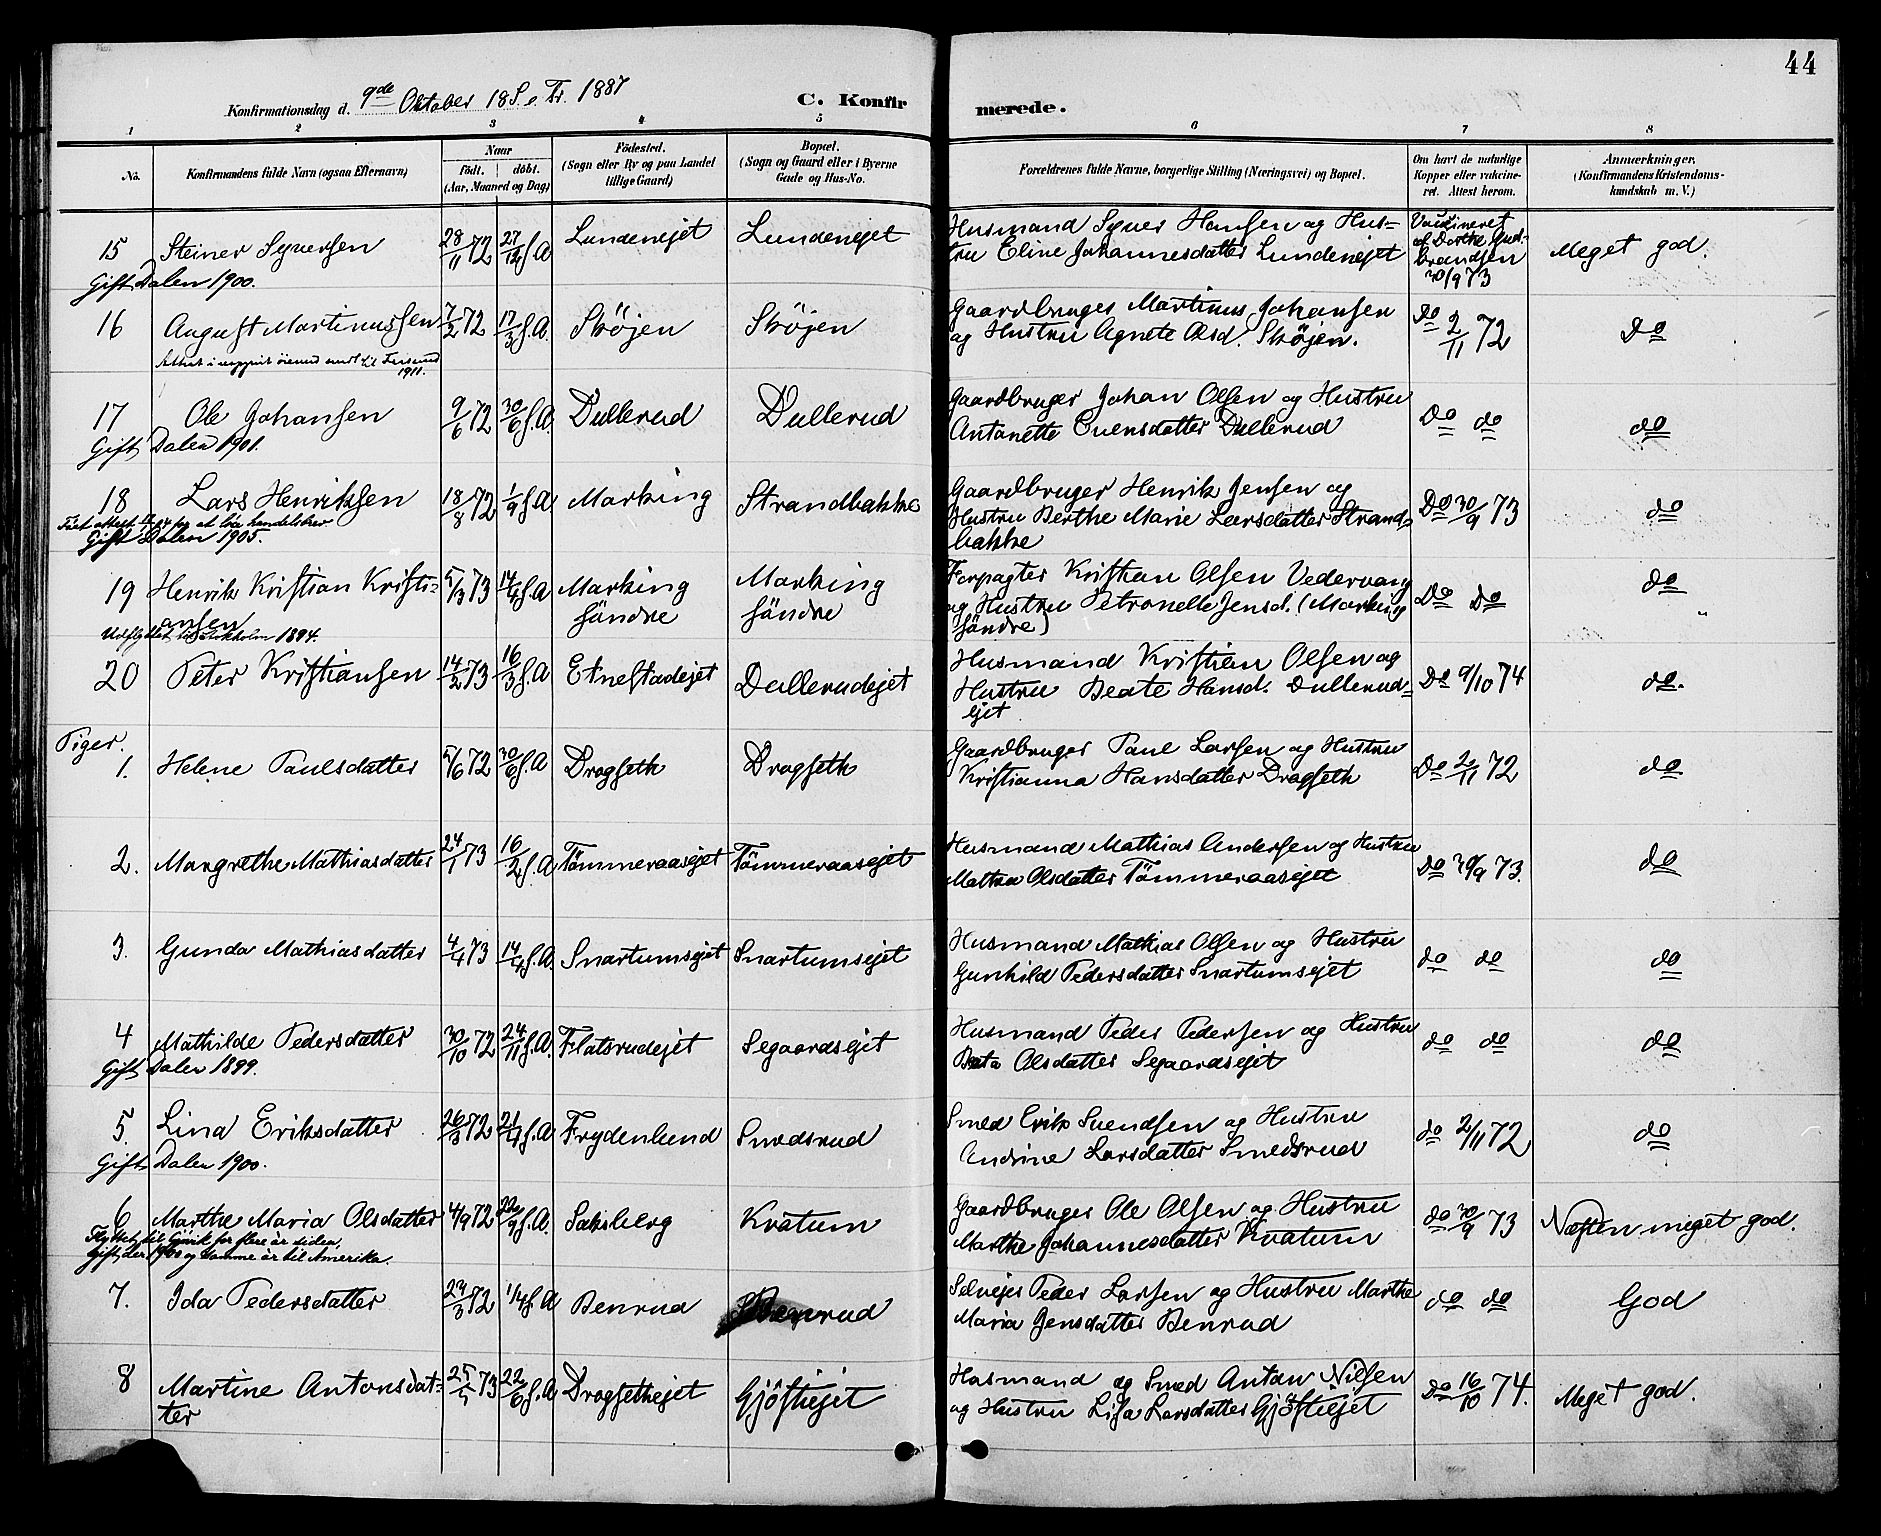 44
Konfirmationsdag d. 9de Oktober 18 S. e. Tr. 1887
C. Konfirmerede.
1 2 3 4 5 6 7 8
No.
Konfirmandens fulde Navn (ogsaa Efternavn)
Naar
födt. döbt.
(Aar, Maaned og Dag)
Födested.
(Sogn eller By og paa Landet
tillige Gaard)
Bopæl.
(Sogn og Gaard eller i Byerne
Gade og Hus-No.
Forældrenes fulde Navne, borgerlige Stilling (Næringsvei) og Bopæl.
Om havt de naturlige
Kopper eller vakcine-
ret. Attest herom.
Anmærkninger.
(Konfirmandens Kristendoms-
kundskab m. V.)
15 Steiner Syversen 28/11 72 27/12 s. A Lundenejet Lundenejet Husmand Syver Hansen og Hus-
tru Eline Johannesdatter Lundenejet
Vaccineret
af Dorthe Gud-
brandsen
30/9 73
Meget god.
Gift Dalen 1900.
16 August Martinussen 7/2 72 17/3 s. A. Sköjen Sköjen Gaardbruger Martinus Johansen
og Hustru Agnete Olsd. Sköjen. Do 2/11 72 Do
1911.
17 Ole Johansen 9/6 72 30/6 s. A. Dullerud Dullerud Gaardbruger Johan Olsen og Hustru
Antonette Evensdatter Dullerud Do do do
Gift Dalen 1901.
18 Lars Henriksen 18/8 72 1/9 s. A Marking Strandbakke Gaardbruger Henrik Jensen og
Hustru Berthe Marie Larsdatter Strand-
bakke Do 30/9 73 do
Gift Dalen 1905.
19 Henrik Kristian Kristi-
ansen 5/3 73 14/4 s. A Marking
söndre Marking
söndre Forpagter Kristian Olsen Vedervang
og Hustru Petronelle Jensd. (Marking
söndre) Do Do do
Udflyttet til Stokholm 1894.
20 Peter Kristiansen 14/2 73 16/3 s. A Etnestadejet Dullerudejet Husmand Kristian Olsen og
Hustru Beate Hansd. Dullerud-
ejet Do 9/10 74 do.
Piger.
1. Helene Paulsdatter 5/6 72 30/6 s. A Dragseth Dragseth Gaardbruger Paul Larsen og Hustru
Kristianna Hansdatter Dragseth Do 2/11 72 do
2. Margrethe Mathiasdatter 24/1 73 16/2 s. A Tömmeraasejet Tömmeraasejet Husmand Mathias Andersen og Hustru
Mathea Olsdatter Tömmeraasejet Do 30/9 73. do
3. Gunda Mathiasdatter 4/4 73 14/4 s. A. Snartumsejet Snartumsejet Husmand Mathias Olsen og Hustru
Gunhild Pedersdatter Snartumsejet do do do
4 Mathilde Pedersdatter 30/10 72 24/11 s. A. Flatsrudejet Segaardsejet Husmand Peder Pedersen og Hustru
Beata Olsdatter Segaardsejet do do do
Gift Dalen 1899.
5. Lina Eriksdatter 26/3 72 21/4 s. A Frydenlund Smedsrud Smed Erik Svendsen og Hustru
Andrine Larsdatter Smedsrud do 2/11 72 do
Gift Dalen 1900.
6 Marthe Maria Olsdatter 4/9 72 22/9 s. A. Saksberg Kvatum Gaardbruger Ole Olsen og Hustru
Marthe Johannesdatter Kvatum do 30/9 73 Næsten meget god.
Flyttet til Gjövik for flere år siden,
Gift der 1900 og samme år til Amerika.
7. Ida Pedersdatter 24/3 72 1/4 s. A Benrud Benrud Selvejer Peder Larsen og Hustru Marthe
Maria Jensdatter Benrud do do God
8 Martine Antonsdat-
ter 25/5 73 22/6 s. A Dragsethejet Gjöstiejet Husmand og Smed Anton Nielsen
og Hustru Lisa Larsdatter Gjöstiejet Do 16/10 74. Meget god.